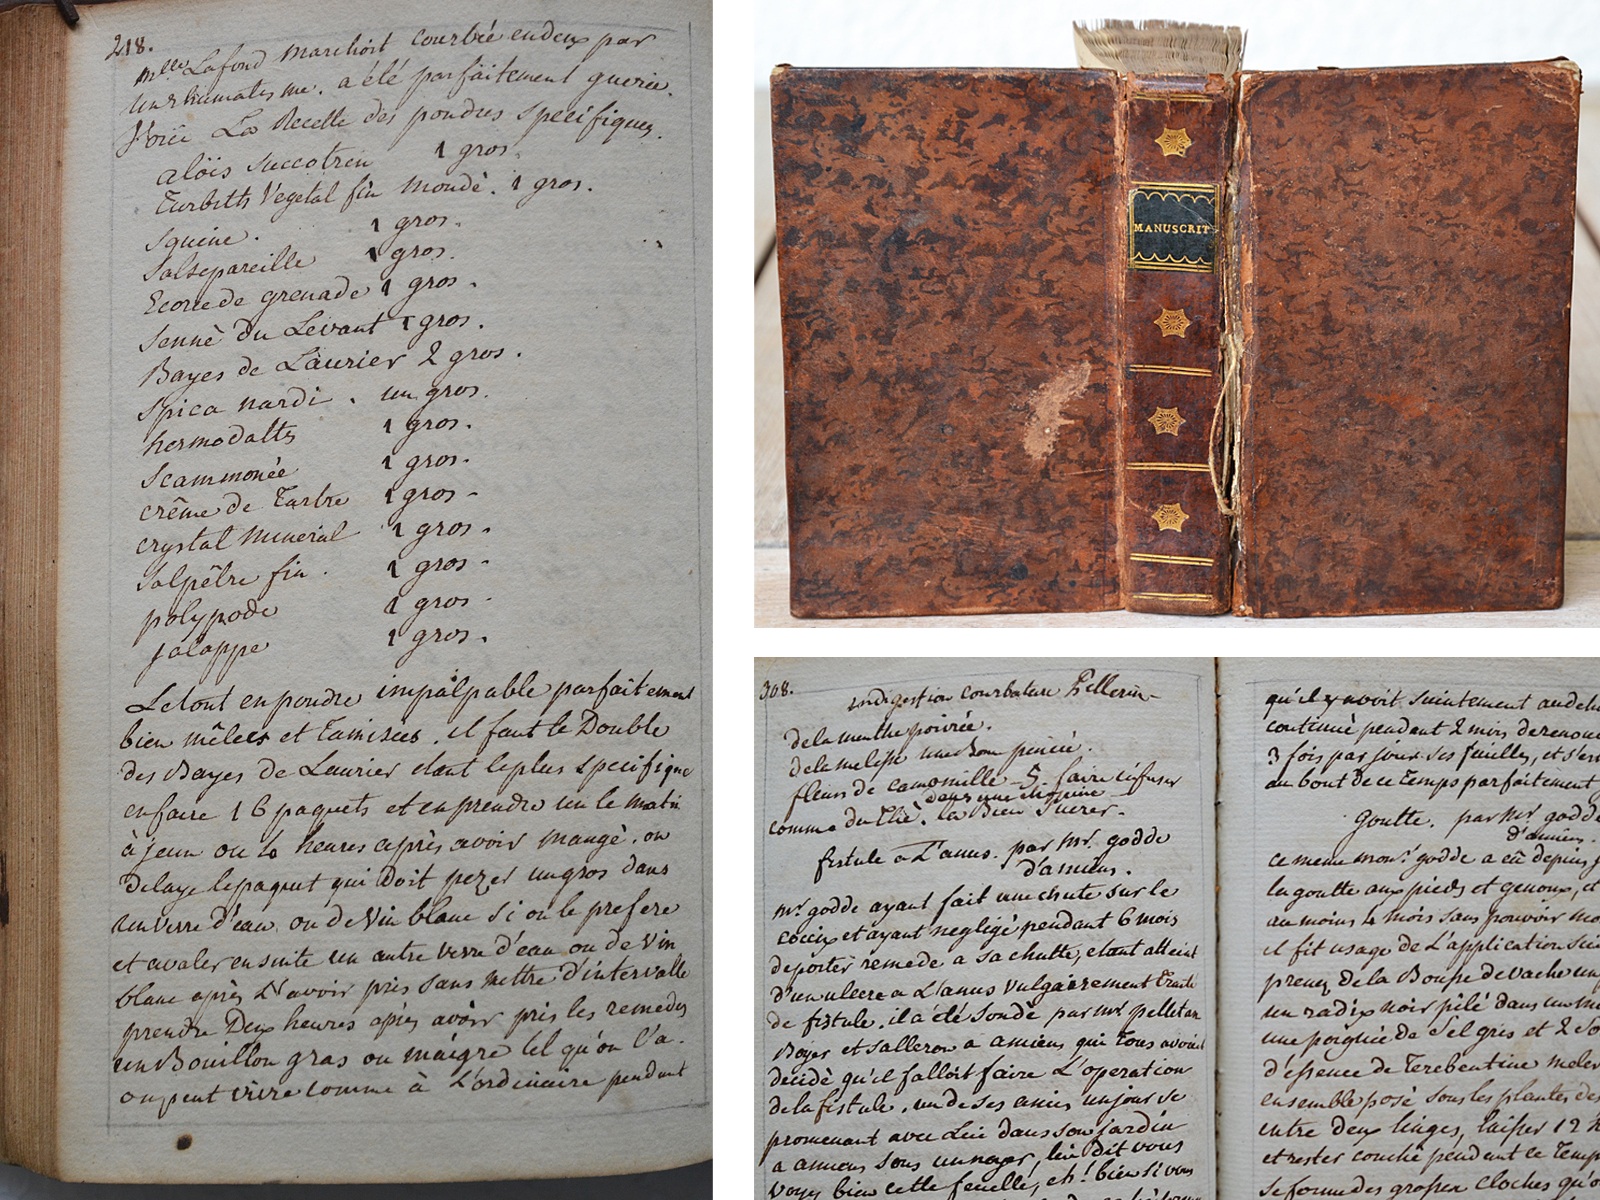 218.
Mlle Lafond marchoit courbée en deux par
un rhumatisme. a été parfaitement guerie.
Voici La Recette des poudres specifiques.
aloïs succotrin 1 gros.
Turbith Vegetal fin mondé. 1 gros.
Squine. 1 gros.
Salsepareille 1 gros.
Ecorce de grenade 1 gros.
Senné du Levant 1 gros.
Bayes de Laurier 2 gros.
Spica nardi. un gros.
hermodalts 1 gros.
Scammonée 1 gros.
crême de Tartre 1 gros.
crystal mineral 1 gros.
Salpêtre fin. 1 gros.
polypode 1 gros.
jalappe 1 gros.
Le tout en poudre impalpable parfaitement
bien mêlees et Tamisees. il faut le Double
des Bayes de Laurier etant le plus specifique
en faire 16 paquets et en prendre un le matin
à jeun ou 10 heures après avoir mangé. on
delaye le paquet qui Doit pezer un gros dans
un verre d'eau ou de Vin blanc si on le prefere
et avaler en suite un autre verre d'eau ou de Vin
blanc après L'avoir pris sans mettre d'intervalle
prendre Deux heures après avoir pris les remedes
un Bouillon gras ou maigre tel qu'on l'a.
on peut vivre comme à L'ordinaire pendant
MANUSCRIT
308.
indigestion courbature Pellerin
de la menthe poivrée.
de la melisse une Bonne pincée.
fleurs de camomille 5. faire infuser
dans une chopine
comme du Thé. la Bien Sucrer.
fistule a L'anus. par Mr. godde
d'amiens.
Mr godde ayant fait une chute sur le
coccix et ayant negligé pendant 6 mois
de porter remede a sa chutte, etant atteint
d'un ulcere a L'anus vulgairement traité
de fistule. il a été sondé par Mr pelletan
Boyer et Salleron a amiens qui Tous avoient
decidé qu'il falloit faire L'operation
de la fistule. un de ses amis un jour se
promenant avec Lui dans son jardin
a amiens sous un noyer, lui dit vous
voyez bien cette feuille, eh! bien si vous
qu'il y avoit suintement au dehors
continué pendant 2 mois de renou
3 fois par jour ses feuilles, et s'est
au bout de ce Temps parfaitement
Goutte. par Mr godde
d'amiens.
ce meme monr. godde a eû depuis
la goutte aux pieds et genoux, et
au moins 4 mois sans pouvoir
il fit usage de L'application
prenez de la Bouse de vache un
un radix noir pilé dans un
une poignée de Sel gris et 2
d'essence de Terebentine
ensemble posé sous les plantes des
entre deux linges, laisser 12
et rester couché pendant ce Temps
se forme des grosses cloches qu'